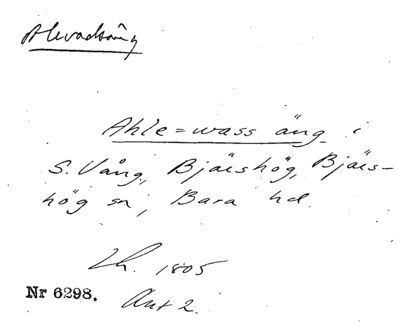 Alevadsäng
Ahle=wass äng i
S. Vång, Bjäershög, Bjäers-
hög sn, Bara hd.
Lh. 1805
Nr 6298. Akt 2.